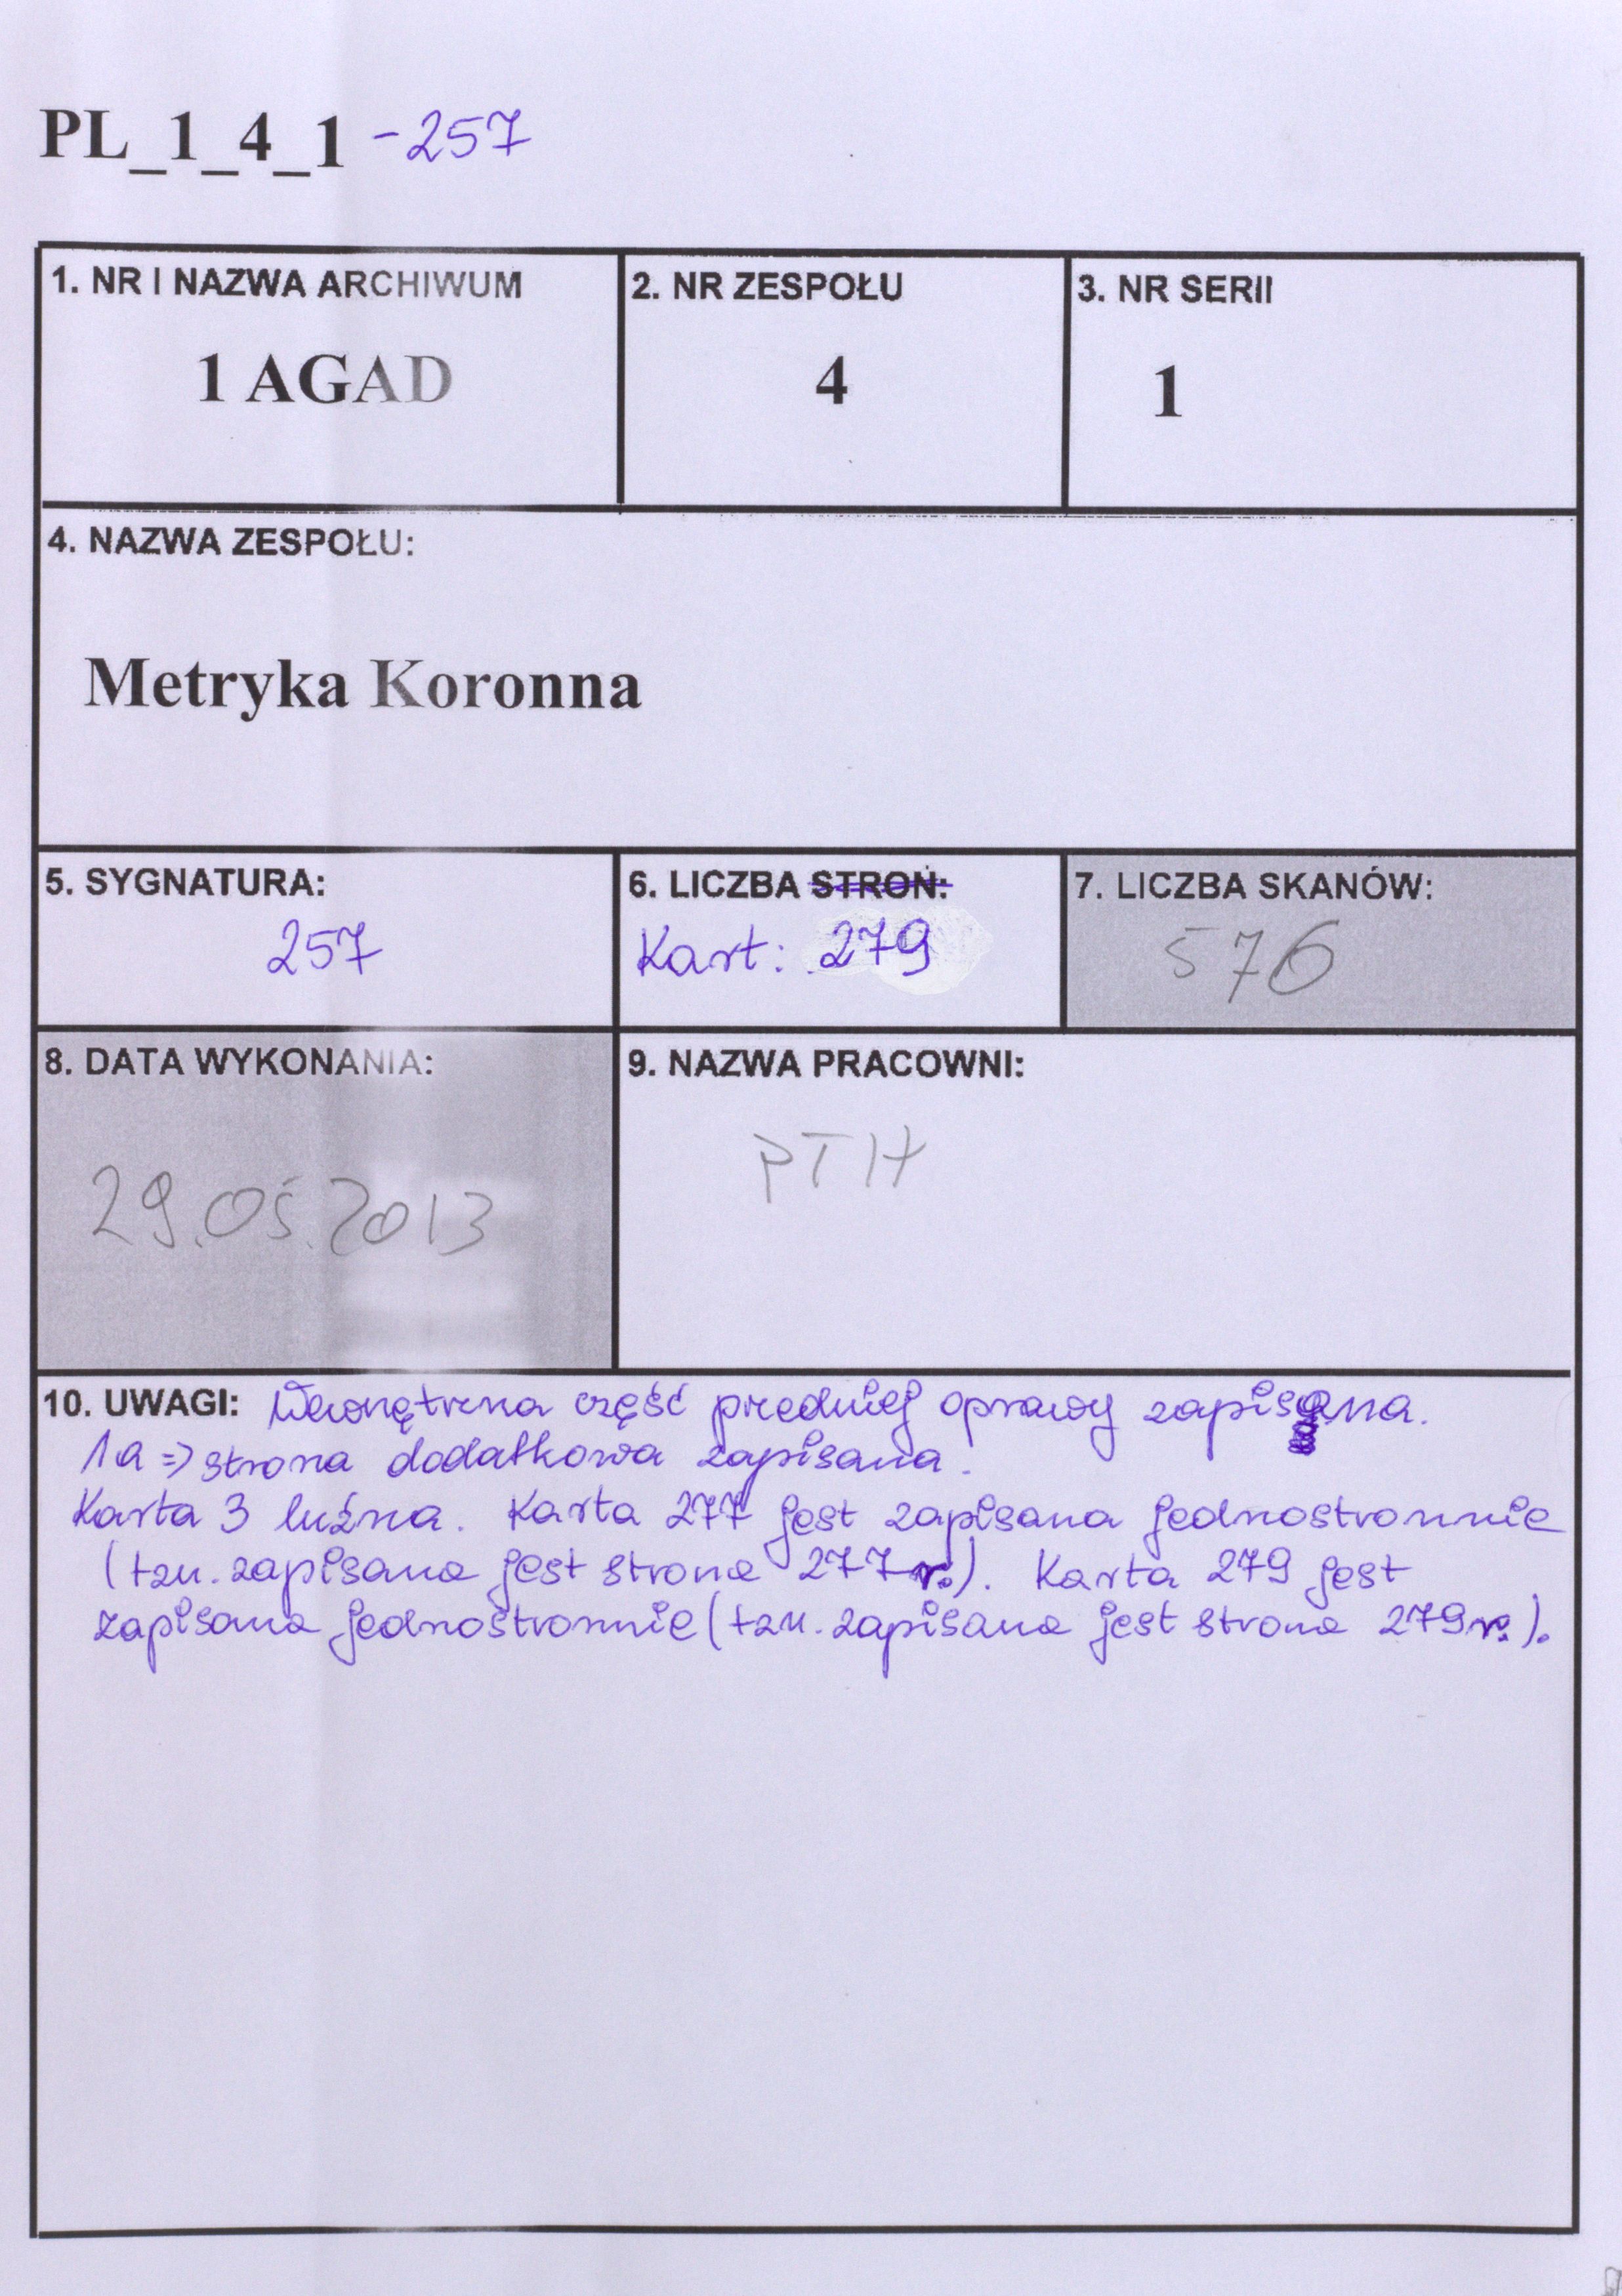 PL_1_4_1 -257
1. NR I NAZWA ARCHIWUM
1 AGAD
2. NR ZESPOŁU
4
3. NR SERII
1
4. NAZWA ZESPOŁU:
Metryka Koronna
5. SYGNATURA:
257
6. LICZBA STRON:
Kart: 279
7. LICZBA SKANÓW:
576
8. DATA WYKONANIA:
29.05.2013
9. NAZWA PRACOWNI:
PTH
10. UWAGI: Wewnętrzna część przedniej oprawy zapisana.
1a => strona dodatkowa zapisana.
Karta 3 luźna. Karta 277 jest zapisana jednostronnie
(tzn. zapisana jest strona 277r.). Karta 279 jest
zapisana jednostronnie (tzn. zapisana jest strona 279r.).